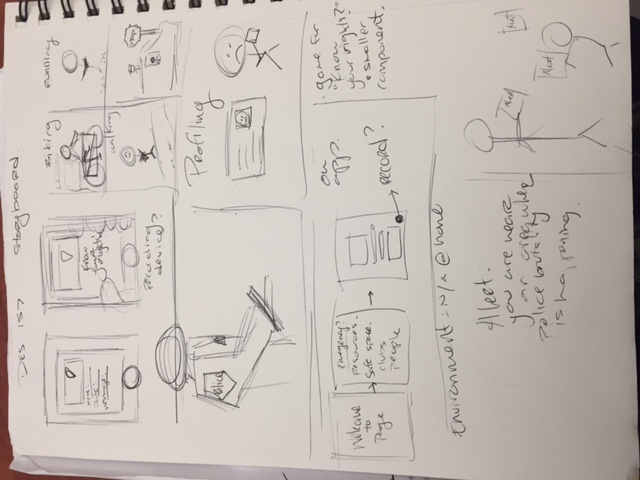 DES 157 Storyboard
know
your
rights
Recording
device?
Biking
Running
walking
stop
Police
Profiling
Welcome
to
Page
emergency?
Resources.
Safe space.
clubs
people
on
app.
RECORD?
game for
"Know
your rights?"
smaller
component.
Environment = N/A @ home
Alert:
you are near
an area where
police brutality
is happening.
Alert
Alert
Alert